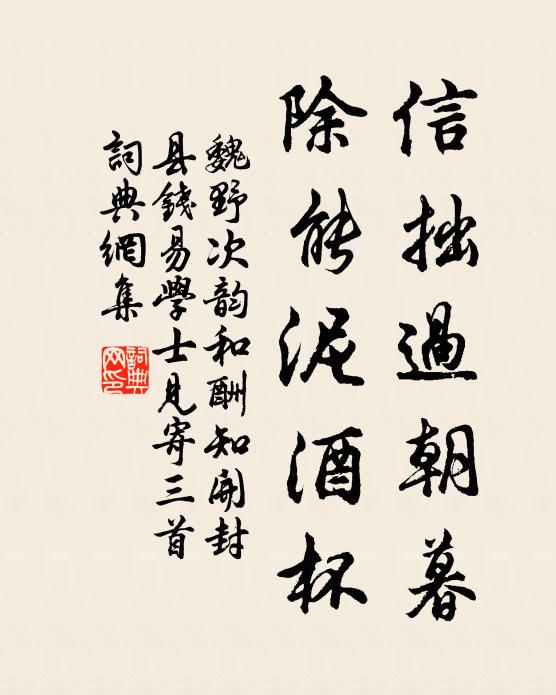 信拙過朝暮
除能泥酒杯
魏野次韵和酬知開封
县錢易學士見寄三首
詞典網集
詞典
网印